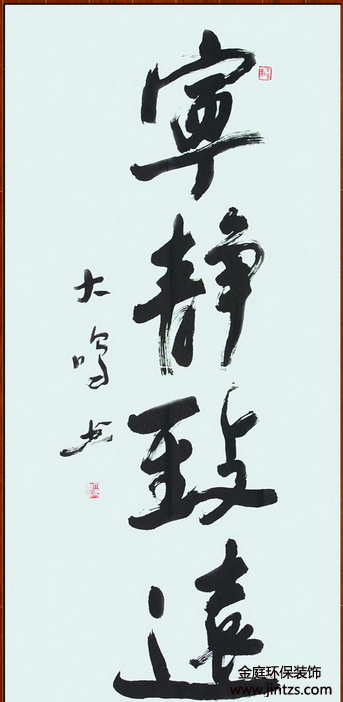 寧静致遠
大鸣书
金庭环保装饰
www.jintzs.com